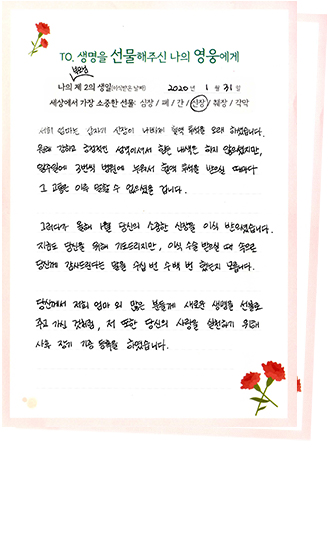 TO. 생명을 선물해주신 나의 영웅에게
부모님
나의 제 2의 생일(이식받은 날짜) 2020 년 1 월 31 일
세상에서 가장 소중한 선물: 심장 / 폐 / 간 / 신장 / 췌장 / 각막
저희 엄마는 갑자기 신장이 나빠져 혈액 투석을 오래 하셨습니다.
원래 강하고 긍정적인 성격이셔서 힘든 내색은 하지 않으셨지만,
일주일에 3번씩 병원에 누워서 혈액 투석을 받으실 때마다
그 고통은 이루 말할 수 없으셨을 겁니다.
그러다가 올해 1월 당신의 소중한 신장을 이식 받으셨습니다.
지금도 당신을 위해 기도드리지만, 이식 수술 받으실 때 속으로
당신께 감사드린다는 말을 수십 번 수백 번 했는지 모릅니다.
당신께서 저희 엄마 외 많은 분들께 새로운 생명을 선물로
주고 가신 것처럼, 저 또한 당신의 사랑을 실천하기 위해
사후 장기 기증 등록을 하였습니다.